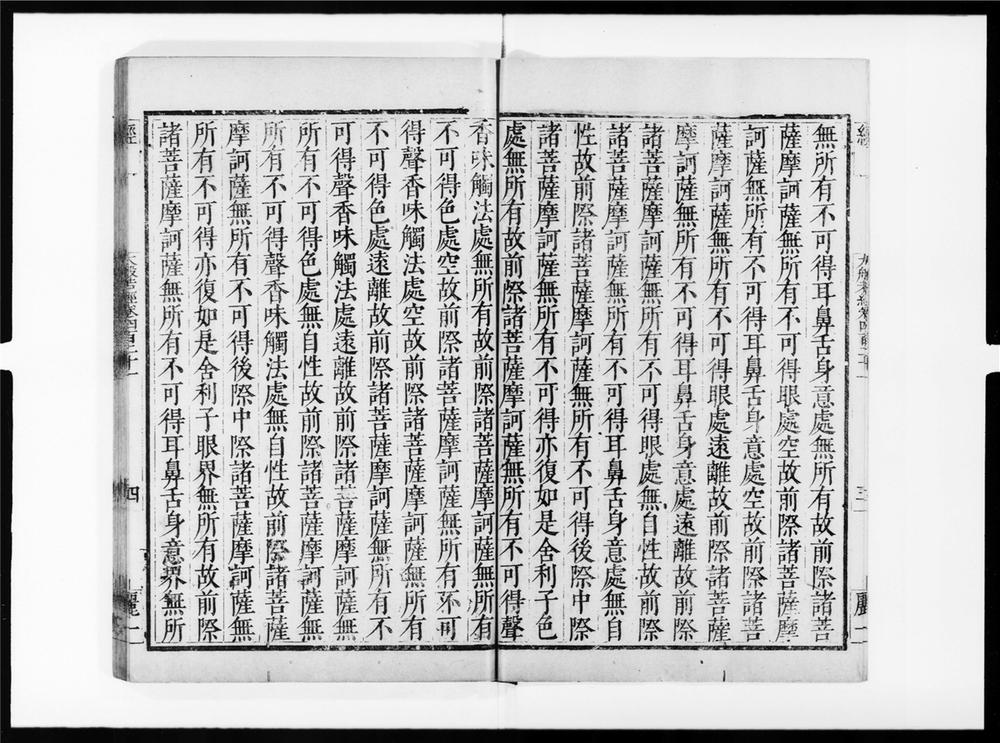 經
大般若經卷四百二十一
三
麗二
無所有不可得耳鼻舌身意處無所有故前際諸菩
薩摩訶薩無所有不可得眼處空故前際諸菩薩摩
訶薩無所有不可得耳鼻舌身意處空故前際諸菩
薩摩訶薩無所有不可得眼處遠離故前際諸菩薩
摩訶薩無所有不可得耳鼻舌身意處遠離故前際
諸菩薩摩訶薩無所有不可得眼處無自性故前際
諸菩薩摩訶薩無所有不可得耳鼻舌身意處無自
性故前際諸菩薩摩訶薩無所有不可得後際中際
諸菩薩摩訶薩無所有不可得亦復如是舍利子色
處無所有故前際諸菩薩摩訶薩無所有不可得聲
香味觸法處無所有故前際諸菩薩摩訶薩無所有
不可得色處空故前際諸菩薩摩訶薩無所有不可
得聲香味觸法處空故前際諸菩薩摩訶薩無所有
不可得色處遠離故前際諸菩薩摩訶薩無所有不
可得聲香味觸法處遠離故前際諸菩薩摩訶薩無
所有不可得色處無自性故前際諸菩薩摩訶薩無
所有不可得聲香味觸法處無自性故前際諸菩薩
摩訶薩無所有不可得後際中際諸菩薩摩訶薩無
所有不可得亦復如是舍利子眼界無所有故前際
諸菩薩摩訶薩無所有不可得耳鼻舌身意界無所
經
大般若經卷四百二十一
四
麗二